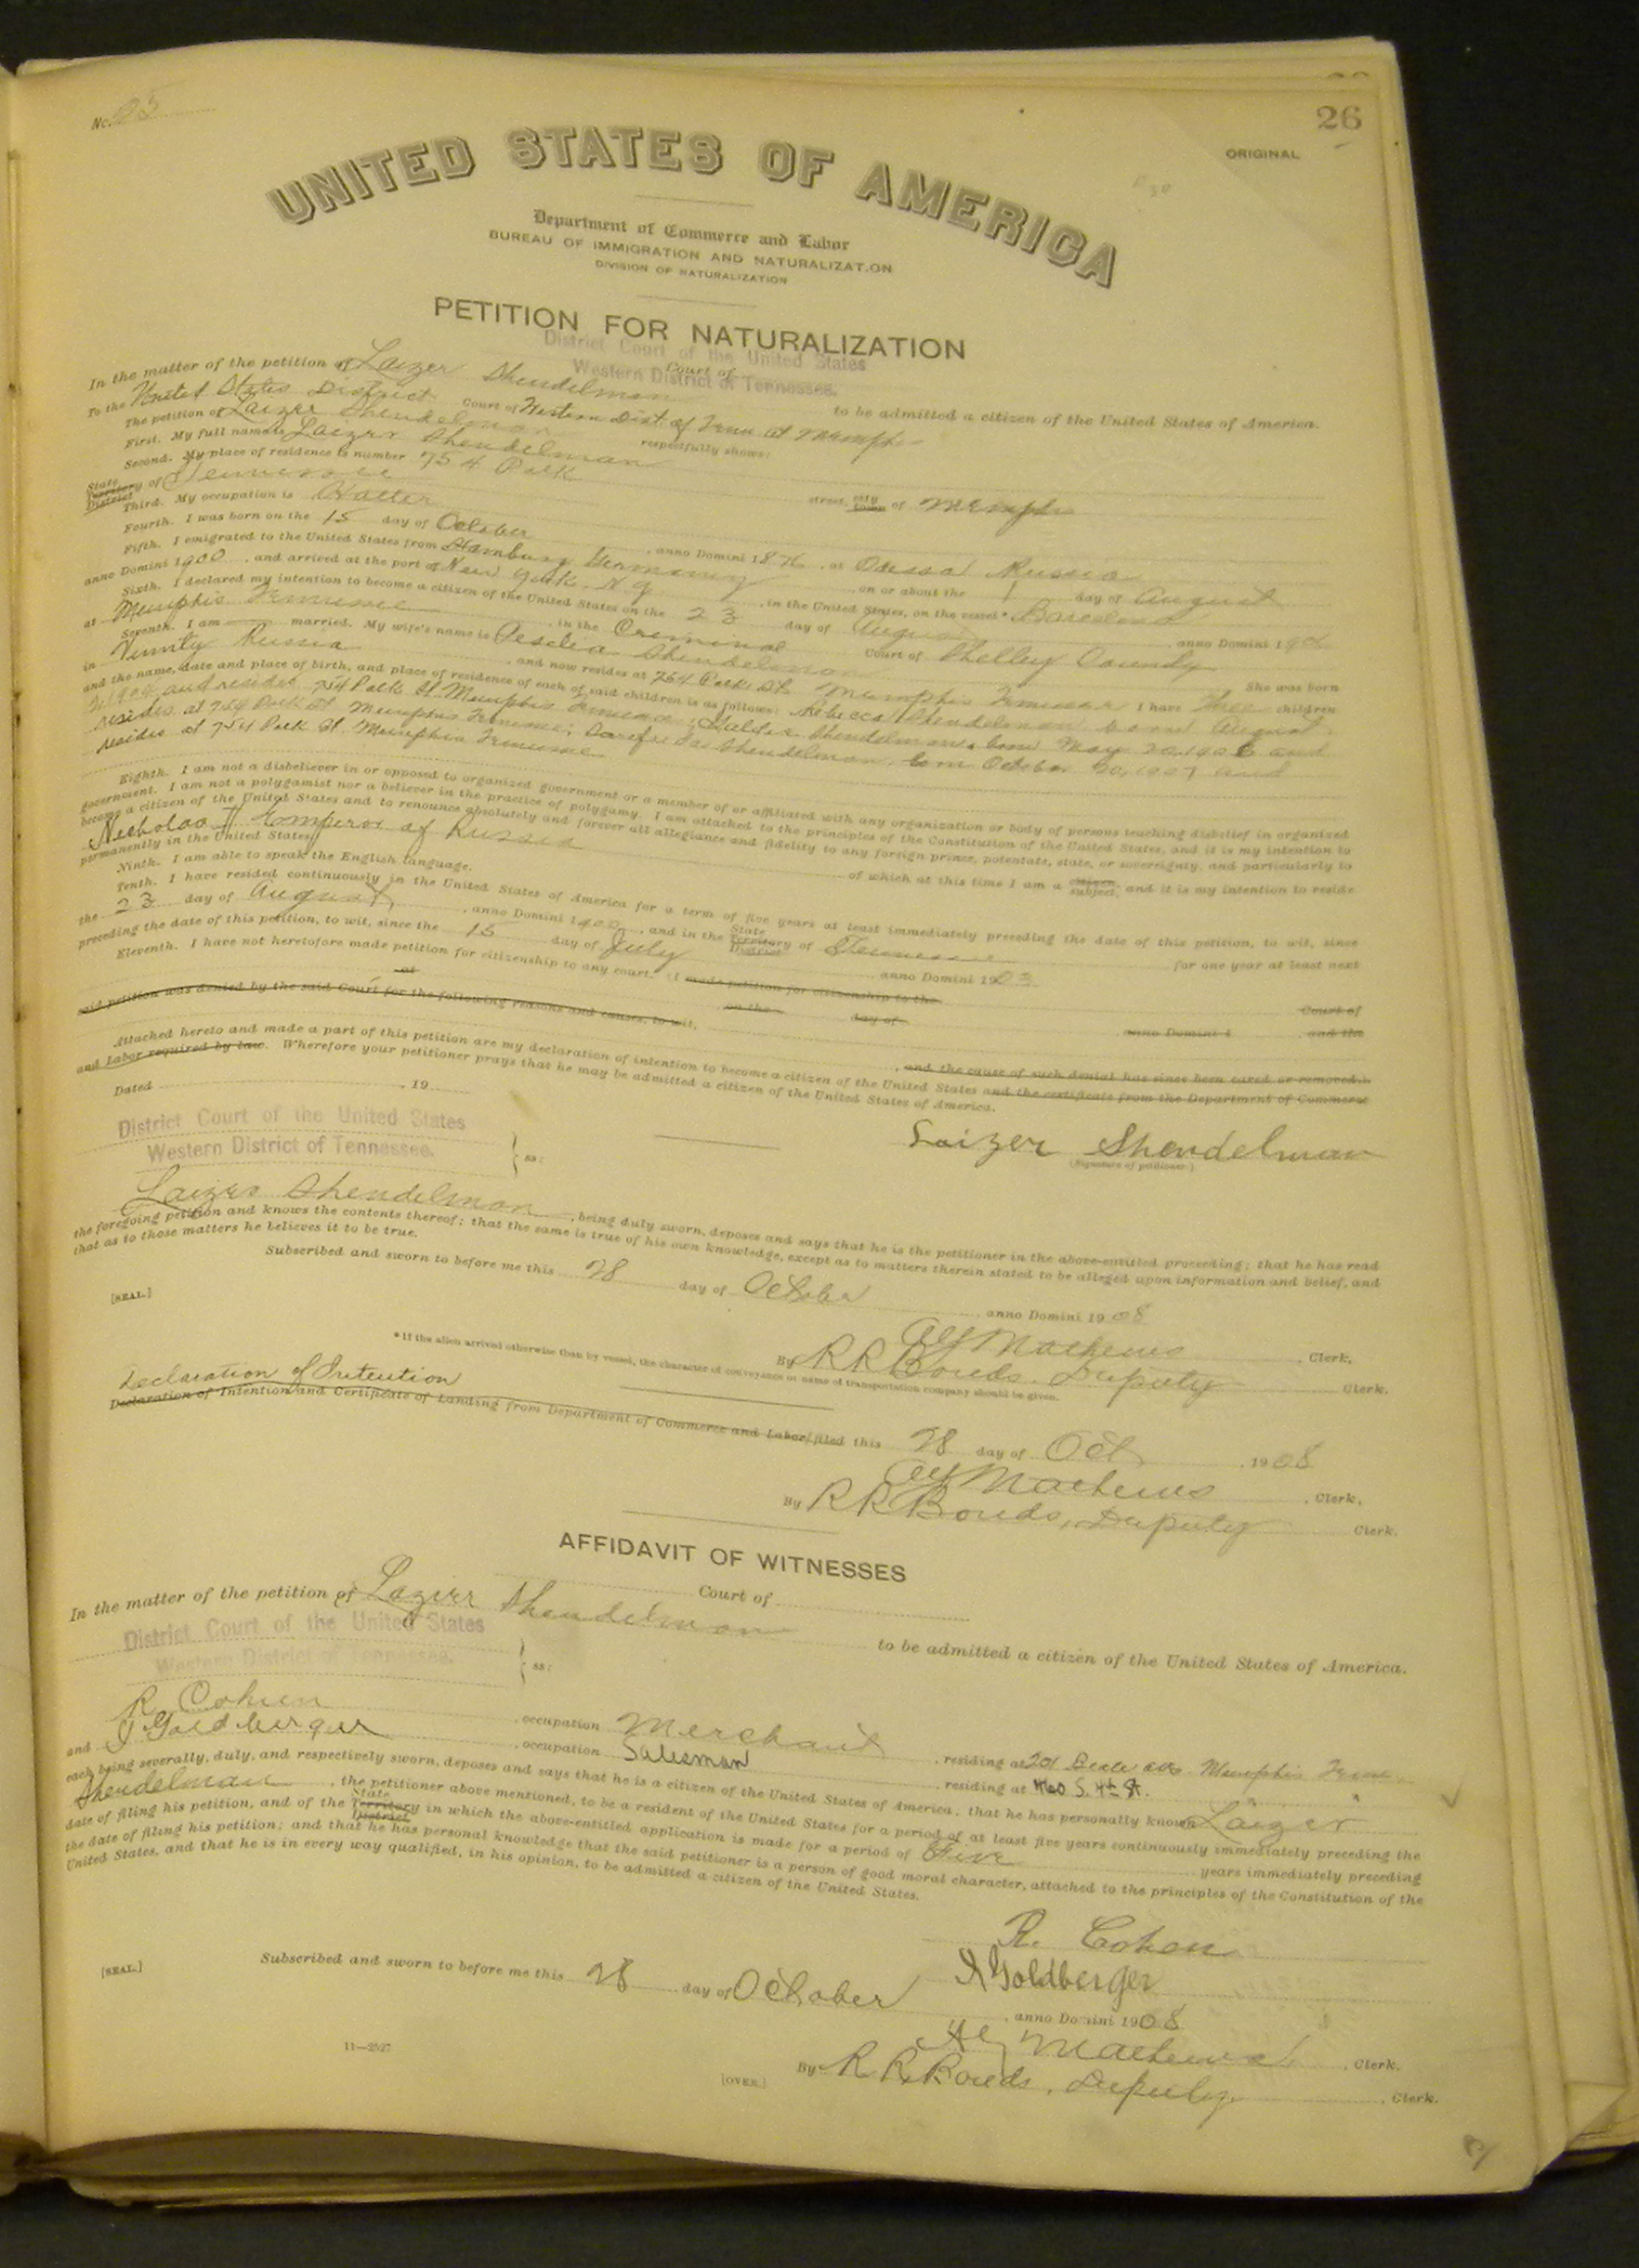 No. 25
26
ORIGINAL
UNITED STATES OF AMERICA
Department of Commerce and Labor
BUREAU OF IMMIGRATION AND NATURALIZATION
DIVISION OF NATURALIZATION
PETITION FOR NATURALIZATION
District Court of the United States
Western District of Tennessee.
Court of
In the matter of the petition of Laizer Shendelman to be admitted a citizen of the United States of America.
To the United States District Court of Western Dist. of Tenn at Memphis
The petition of Laizer Shendelman respectfully shows:
First. My full name is Laizer Shendelman
Second. My place of residence is number 754 Polk street, city town of Memphis
State Territory District of Tennessee
Third. My occupation is
Fourth. I was born on the 15 day of October, anno Domini 1876, at Odessa Russia
Fifth. I emigrated to the United States from Hamburg Germany, on or about the 1 day of August
anno Domini 1900, and arrived at the port of New York N.Y., in the United States, on the vessel*
Sixth. I declared my intention to become a citizen of the United States on the 23 day of August, anno Domini 190
at Memphis Tennessee, in the Criminal Court of Shelby County
Seventh. I am married. My wife's name is Shendelman She was born
in Russia, and now resides at 754 Polk St. Memphis Tennessee I have Three children,
and the name, date and place of birth, and place of residence of each of said children is as follows: Rebecca Shendelman born August
1904 and resides 754 Polk St Memphis Tennessee; Shendelman, born May 20, 1906 and
resides at 754 Polk St. Memphis Tennessee; Shendelman, born October 20, 1907 and
resides at 754 Polk St. Memphis Tennessee
Eighth. I am not a disbeliever in or opposed to organized government or a member of or affiliated with any organization or body of persons teaching disbelief in organized
government. I am not a polygamist nor a believer in the practice of polygamy. I am attached to the principles of the Constitution of the United States, and it is my intention to
become a citizen of the United States and to renounce absolutely and forever all allegiance and fidelity to any foreign prince, potentate, state, or sovereignty, and particularly to
Nicholas II Emperor of Russia of which at this time I am a citizen subject, and it is my intention to reside
permanently in the United States.
Ninth. I am able to speak the English language.
Tenth. I have resided continuously in the United States of America for a term of five years at least immediately preceding the date of this petition, to wit, since
the 23 day of August, anno Domini 1900, and in the State Territory District of Tennessee for one year at least next
preceding the date of this petition, to wit, since the 15 day of July anno Domini 1903
Eleventh. I have not heretofore made petition for citizenship to any court. (I made petition for citizenship to the Court of
at on the day of anno Domini 1 and the
said petition was denied by the said Court for the following reasons and causes, to wit,
, and the cause of such denial has since been cured or removed.)
Attached hereto and made a part of this petition are my declaration of intention to become a citizen of the United States and the certificate from the Department of Commerce
and Labor required by law. Wherefore your petitioner prays that he may be admitted a citizen of the United States of America.
Dated , 19
Laizer Shendelman
(Signature of petitioner)
District Court of the United States
Western District of Tennessee.
ss:
Laizer Shendelman, being duly sworn, deposes and says that he is the petitioner in the above-entitled proceeding; that he has read
the foregoing petition and knows the contents thereof; that the same is true of his own knowledge, except as to matters therein stated to be alleged upon information and belief, and
that as to those matters he believes it to be true.
Subscribed and sworn to before me this 28 day of October, anno Domini 1908
[SEAL.]
Mathews, Clerk.
By R R Bonds, Deputy Clerk.
*If the alien arrived otherwise than by vessel, the character of conveyance or name of transportation company should be given.
Declaration of Intention
Declaration of Intention and Certificate of Landing from Department of Commerce and Labor filed this 28 day of Oct, 1908
Mathews, Clerk.
By R R Bonds, Deputy Clerk.
AFFIDAVIT OF WITNESSES
Court of
In the matter of the petition of Laizer Shendelman to be admitted a citizen of the United States of America.
District Court of the United States
Western District of Tennessee.
ss:
R. Cohen, occupation Merchant, residing at 201 Beale ave Memphis Tenn
and Goldberger, occupation Salesman, residing at S. 4th St. " "
each being severally, duly, and respectively sworn, deposes and says that he is a citizen of the United States of America; that he has personally known Laizer
Shendelman, the petitioner above mentioned, to be a resident of the United States for a period of at least five years continuously immediately preceding the
date of filing his petition, and of the State Territory District in which the above-entitled application is made for a period of Five years immediately preceding
the date of filing his petition; and that he has personal knowledge that the said petitioner is a person of good moral character, attached to the principles of the Constitution of the
United States, and that he is in every way qualified, in his opinion, to be admitted a citizen of the United States.
R. Cohen
Goldberger
[SEAL.]
Subscribed and sworn to before me this 28 day of October, anno Domini 1908
Mathews, Clerk.
By R R Bonds, Deputy Clerk.
11—2527
[OVER.]